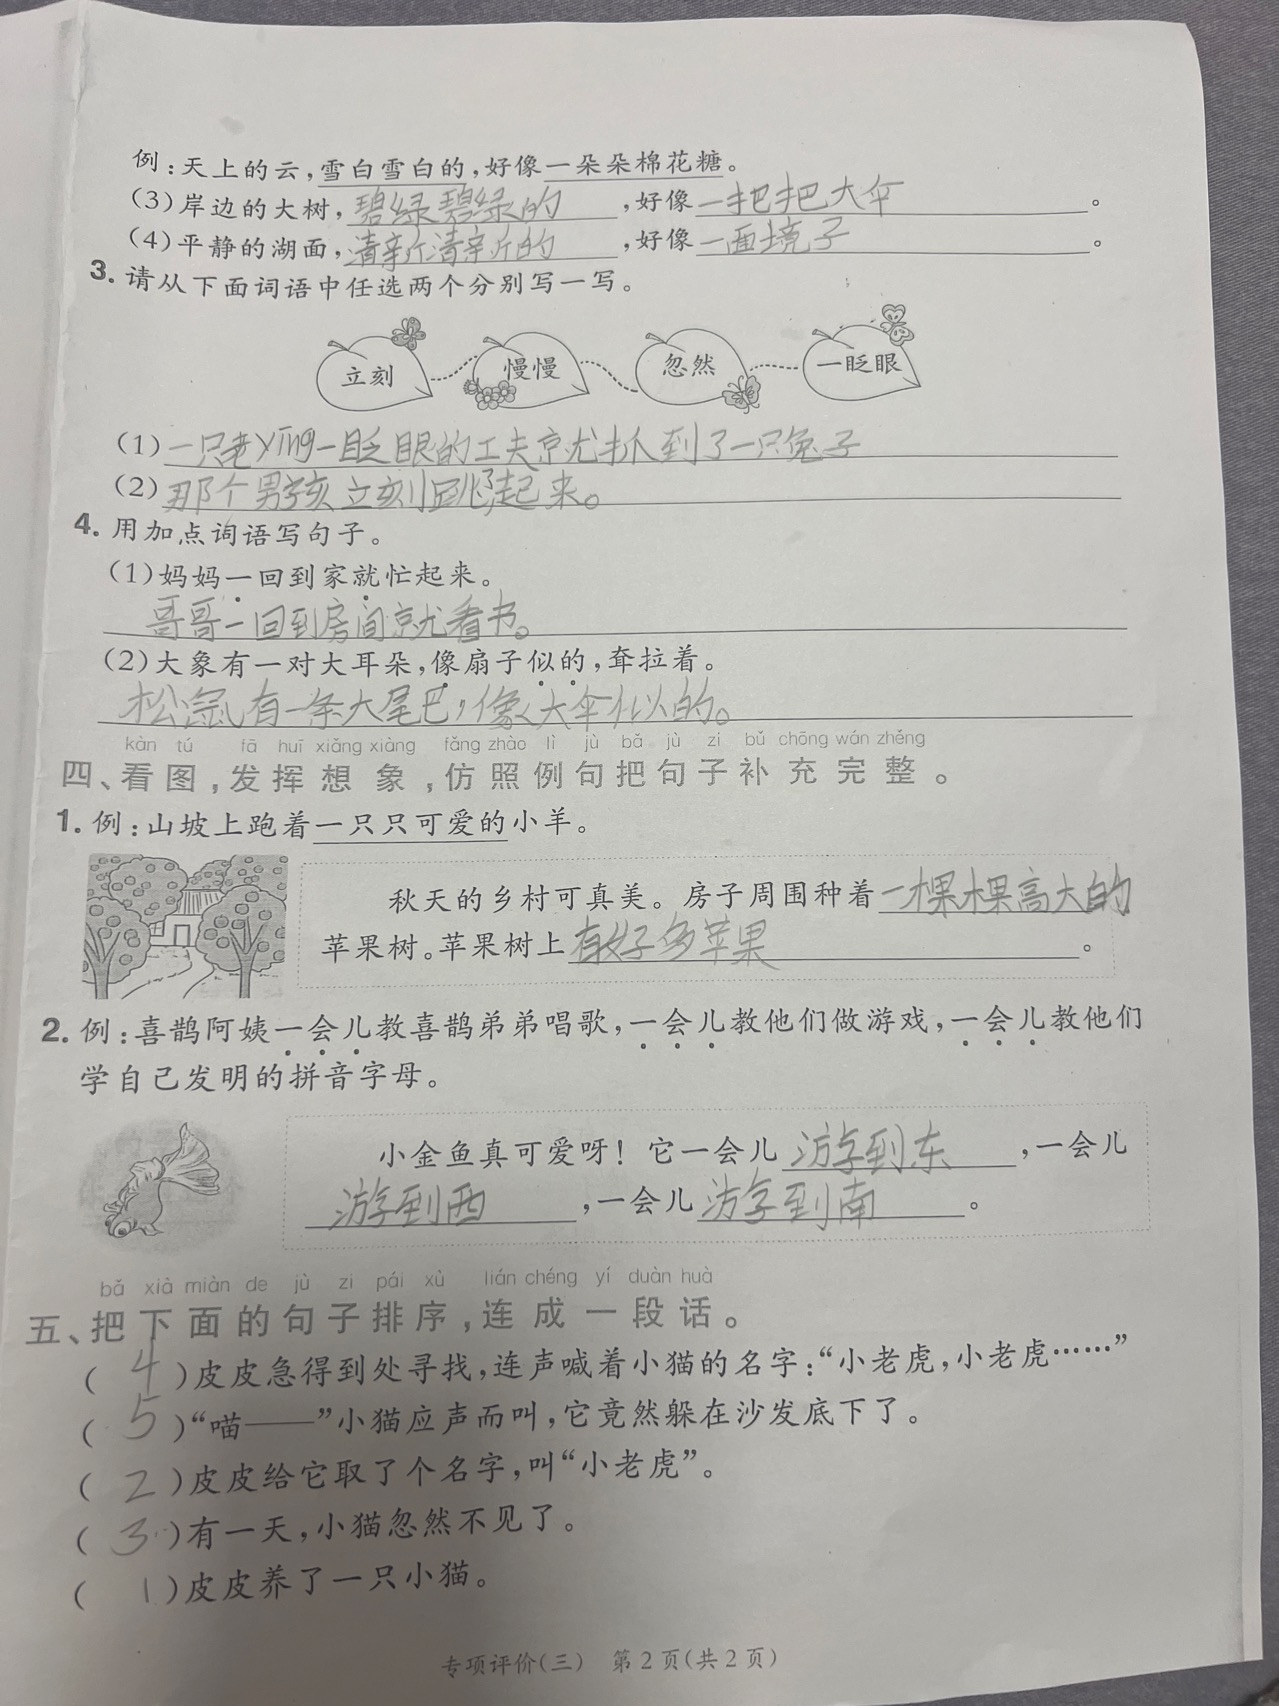 例：天上的云，雪白雪白的，好像一朵朵棉花糖。
（3）岸边的大树，碧绿碧绿的，好像一把把大伞。
（4）平静的湖面，清新清新的，好像一面境子。
3. 请从下面词语中任选两个分别写一写。
立刻 慢慢 忽然 一眨眼
（1）一只老yīng一眨眼的工夫就抓到了一只兔子
（2）那个男孩立刻跳了起来。
4. 用加点词语写句子。
（1）妈妈一回到家就忙起来。
哥哥一回到房间就看书。
（2）大象有一对大耳朵，像扇子似的，耷拉着。
松鼠有一条大尾巴，像大伞似的。
kàn tú fā huī xiǎng xiàng fǎng zhào lì jù bǎ jù zi bǔ chōng wán zhěng
四、看图，发挥想象，仿照例句把句子补充完整。
1. 例：山坡上跑着一只只可爱的小羊。
秋天的乡村可真美。房子周围种着一棵棵高大的
苹果树。苹果树上有好多苹果。
2. 例：喜鹊阿姨一会儿教喜鹊弟弟唱歌，一会儿教他们做游戏，一会儿教他们
学自己发明的拼音字母。
小金鱼真可爱呀！它一会儿游到东，一会儿
游到西，一会儿游到南。
bǎ xià miàn de jù zi pái xù lián chéng yí duàn huà
五、把下面的句子排序，连成一段话。
（4）皮皮急得到处寻找，连声喊着小猫的名字：“小老虎，小老虎……”
（5）“喵——”小猫应声而叫，它竟然躲在沙发底下了。
（2）皮皮给它取了个名字，叫“小老虎”。
（3）有一天，小猫忽然不见了。
（1）皮皮养了一只小猫。
专项评价（三） 第2页（共2页）